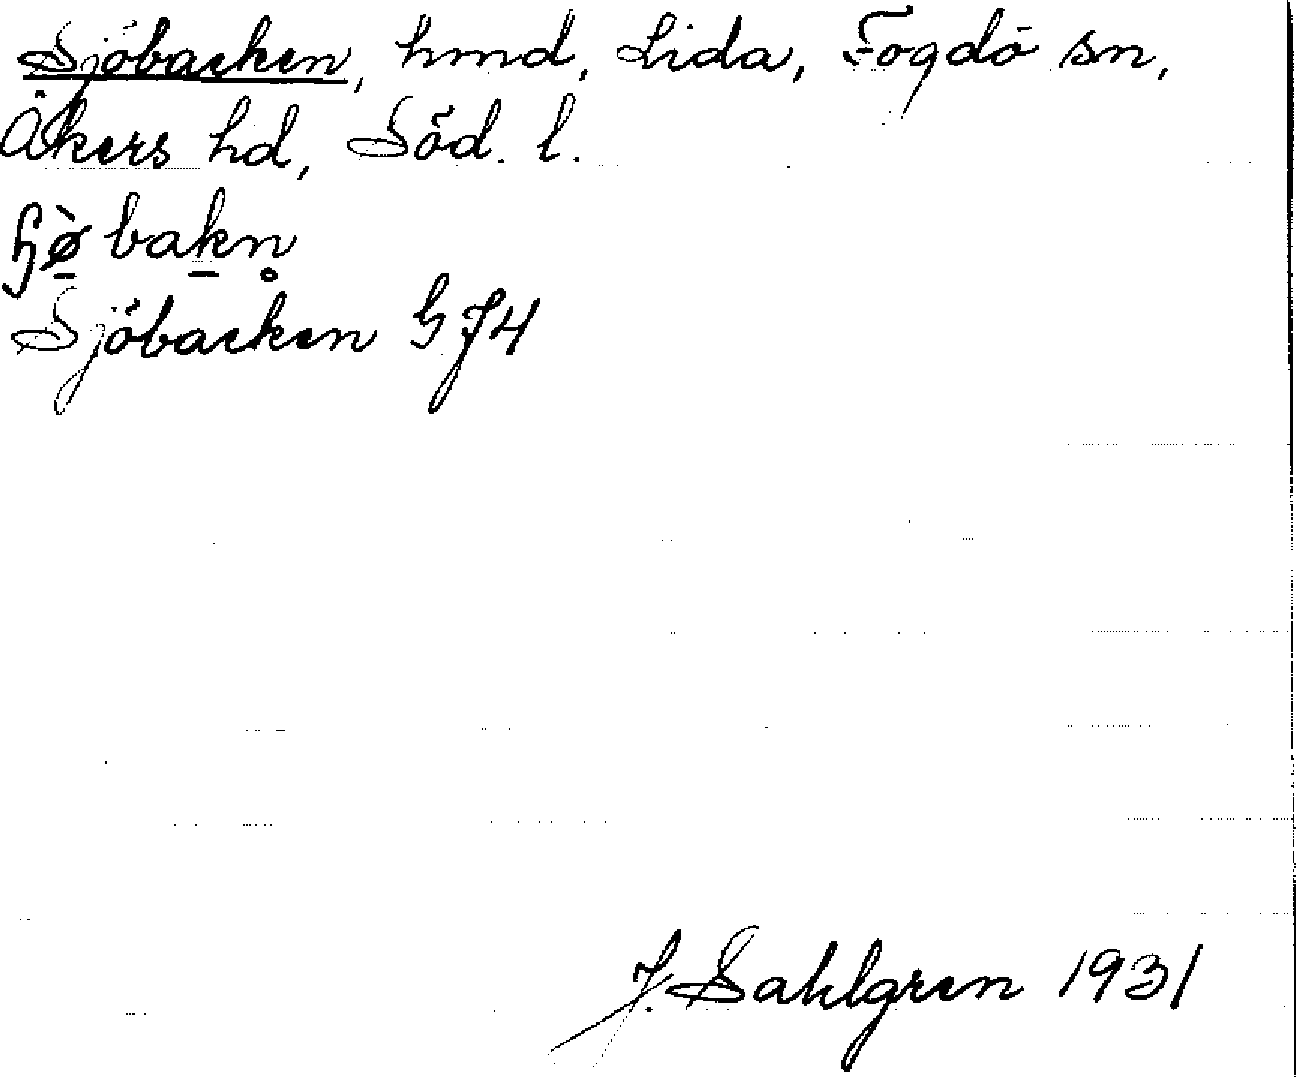 Sjöbacken, hmd, Lida, Fogdö sn,
Åkers hd, Söd. l.
ɧø̠̀ bak̠n̥
Sjöbacken G J4
J. Sahlgren 1931